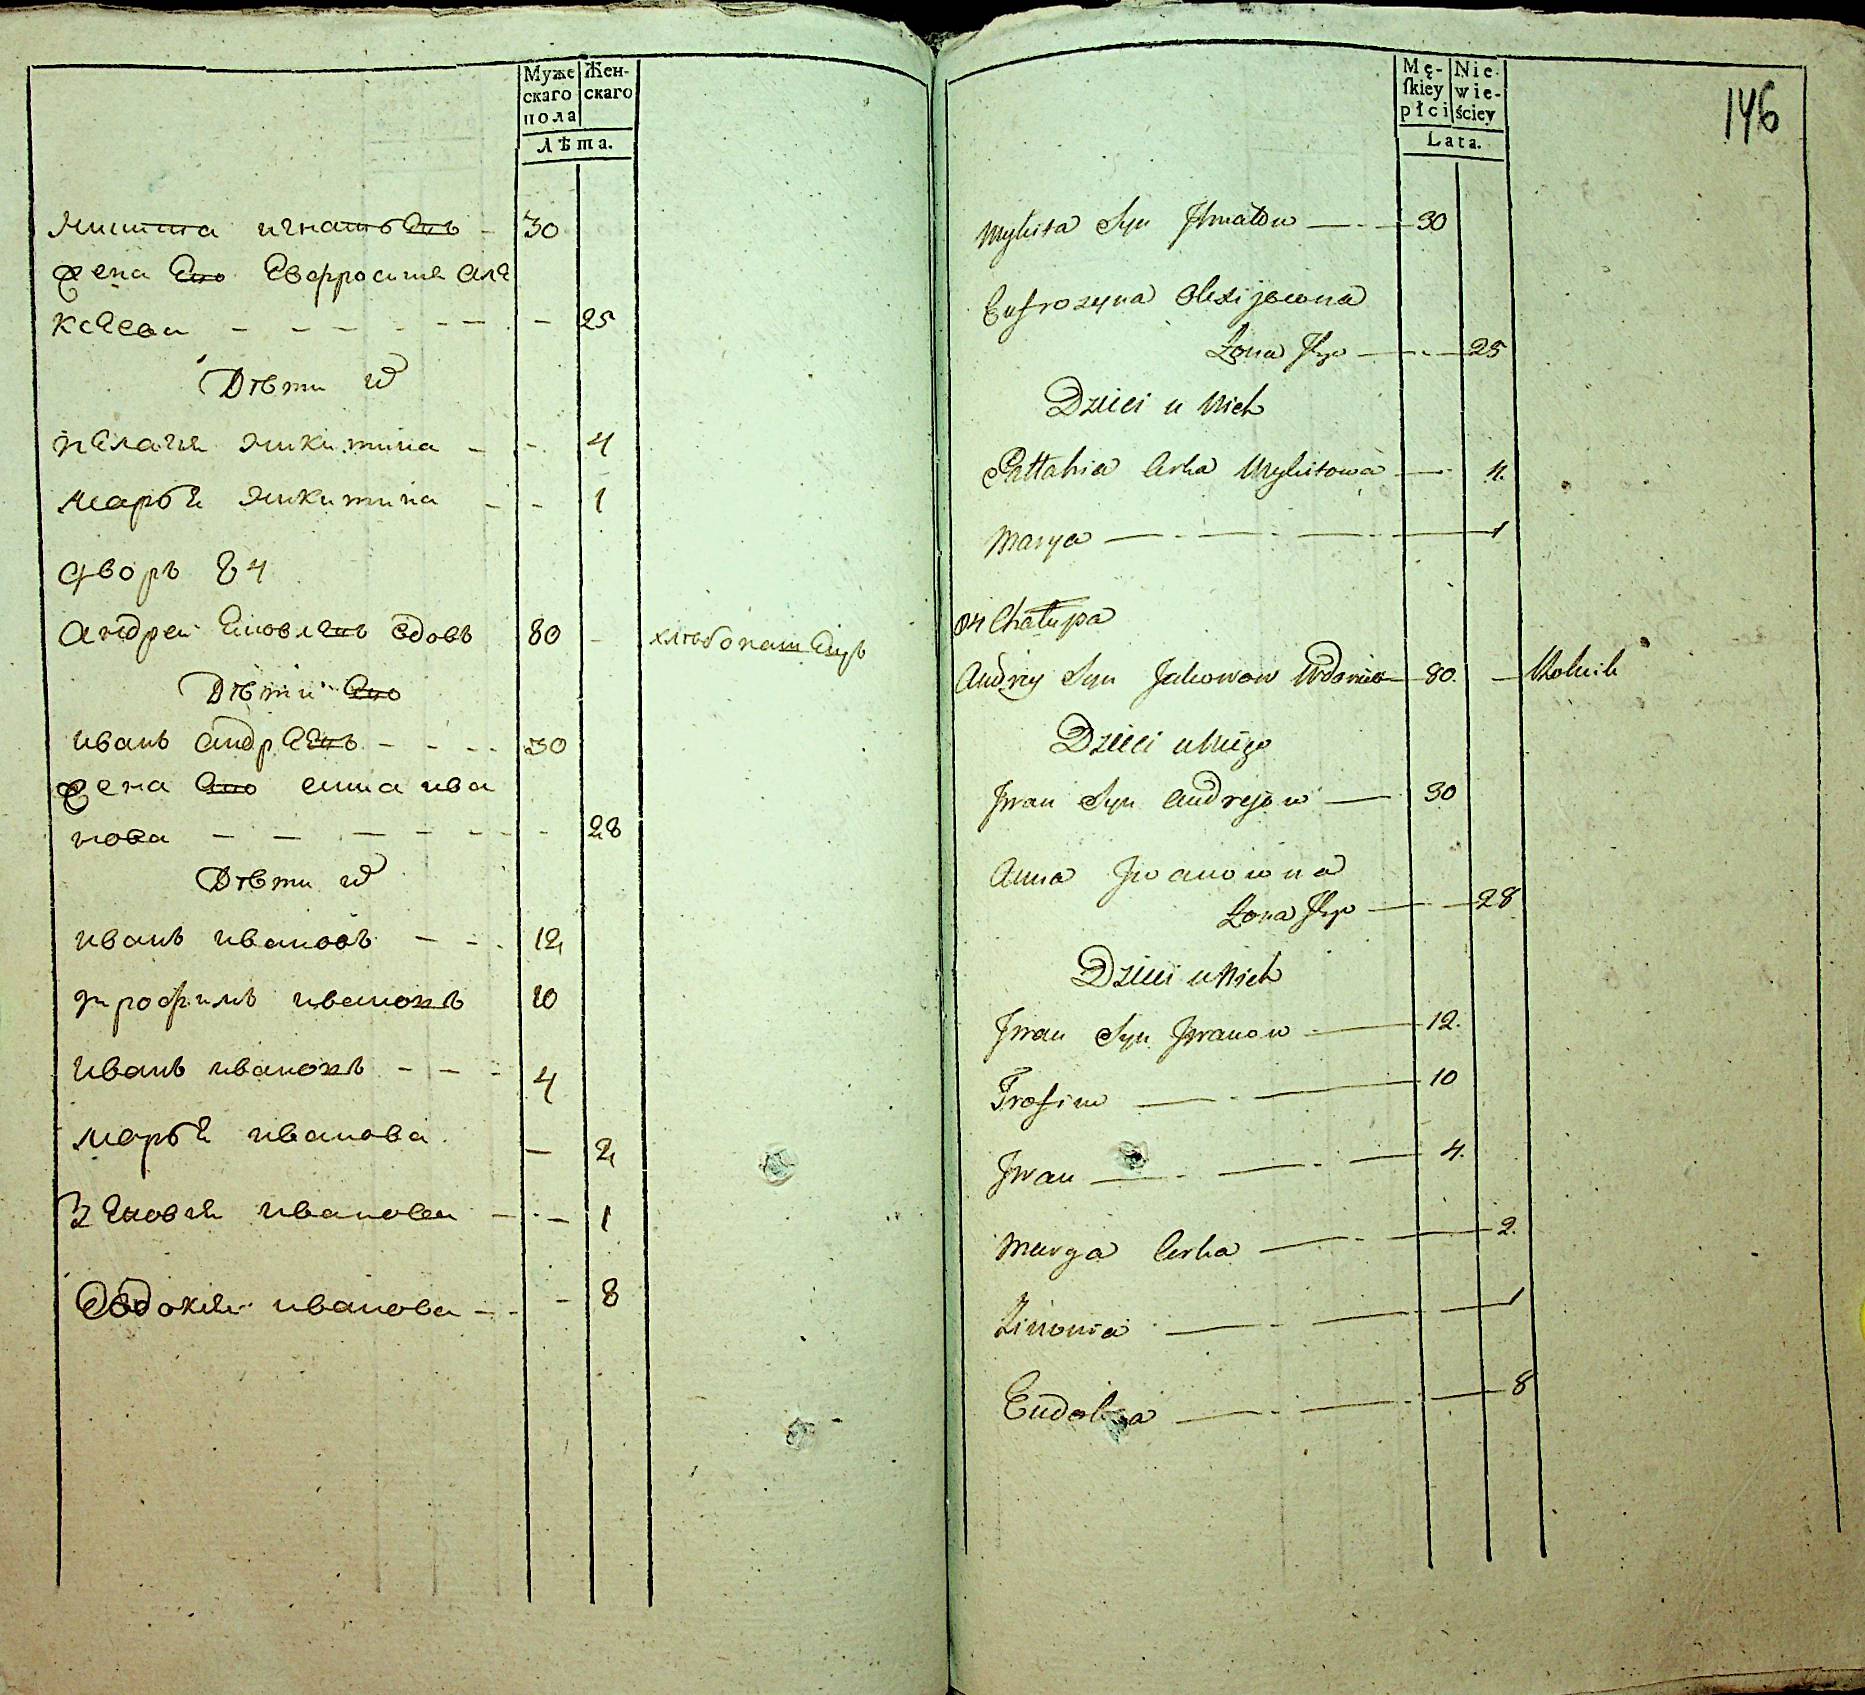 Муже Жен-
скаго скаго
пола
Лѣта.
Микита игнатьевъ - 30
жена Его Евфросиня але
ксеева - - - - - - - 25
Дѣти их
пелагия микитина - - 4
марья микитина - - 1
дворъ 84
андреи Яковлевъ вдовъ 80 - хлѣбопашецъ
Дѣти Его
иванъ андреевъ - - - - 30
жена Его анна ива
нова - - - - - - - 28
Дѣти их
иванъ ивановъ - - - 12
трофимъ ивановъ 10
иванъ ивановъ - - - 4
марья иванова - 2
Зеновия иванова - - - 1
Овдокия иванова - - - 8
Mę- Nie-
ſkiey wie-
płci ściey
Lata.
146
Mykita Syn Ihnatow — - — 30
Eufrozyna Olexijewna
Żona Jego — - — 25
Dzieci u Nich
Pellahia Corka Mykitowa — - 4.
Marya — - — - — - — 1
84 Chałupa
Andrey Syn Jakowow Wdowiec — 80. — Rolnik
Dzieci u Niego
Jwan Syn Andrejow — 30
Anna Jwanowna
Żona Jego — - — 28
Dzieci u Nich
Jwan Syn Jwanow — 12.
Trofim — - — 10
Jwan — - — - — 4.
Marya Corka — - — 2.
Zinowia — - — - — 1
Eudokya — - — - — 8